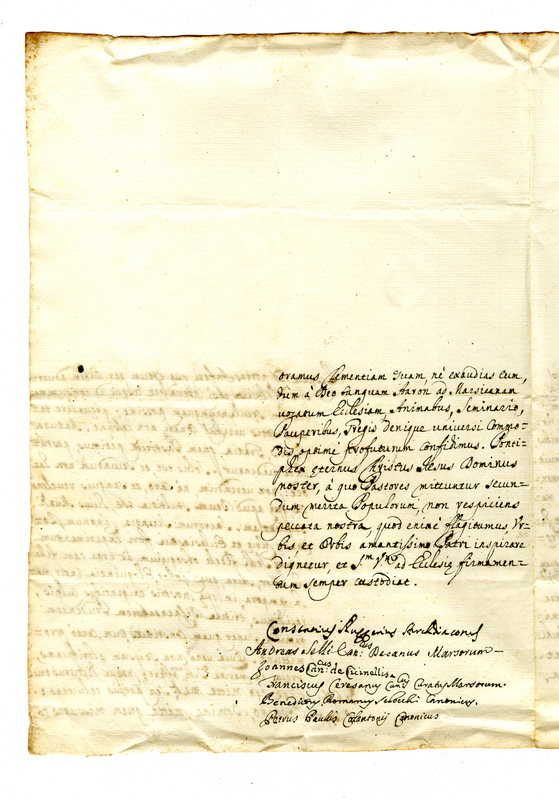 oramus Clementiam tuam, nè exaudias Eun-
dum à Deo tanquam Aaron ad Marsicanam
uocatum Ecclesiam, Animabus, Seminario,
Pauperibus, Gregis denique universi Commo-
dis optimè profuturum confidimus. Ponti-
ficum eternus Christus Iesus Dominus
noster, à quo Pastores mittuntur secun-
dum merita Populorum, non respiciens
peccata nostra, quod enixè flagitamus Vr-
bis et Orbis amantissimo Patri inspirare
dignetur, et ad Ecclesiæ firmamen-
tum semper custodiat.
Constantius Archidiaconus
Andreas Can:cus Decanus Marsorum
Joannes Can:cus de
Franciscus Can:cus Curatus Marsorum
Benedictus Romanus Canonicus.
Petrus Paulus Canonicus